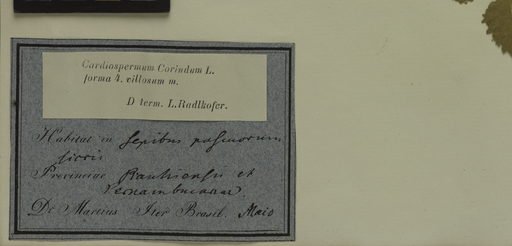 Cardiospermum Corindum L.
forma 4. villosum m.
Determ. L. Radlkofer.
Habitat in sepibus pascuorum
siccis
Provinciae Piauhiensis et
Pernambucanae.
Dr. Martius Iter Brasil. Maio